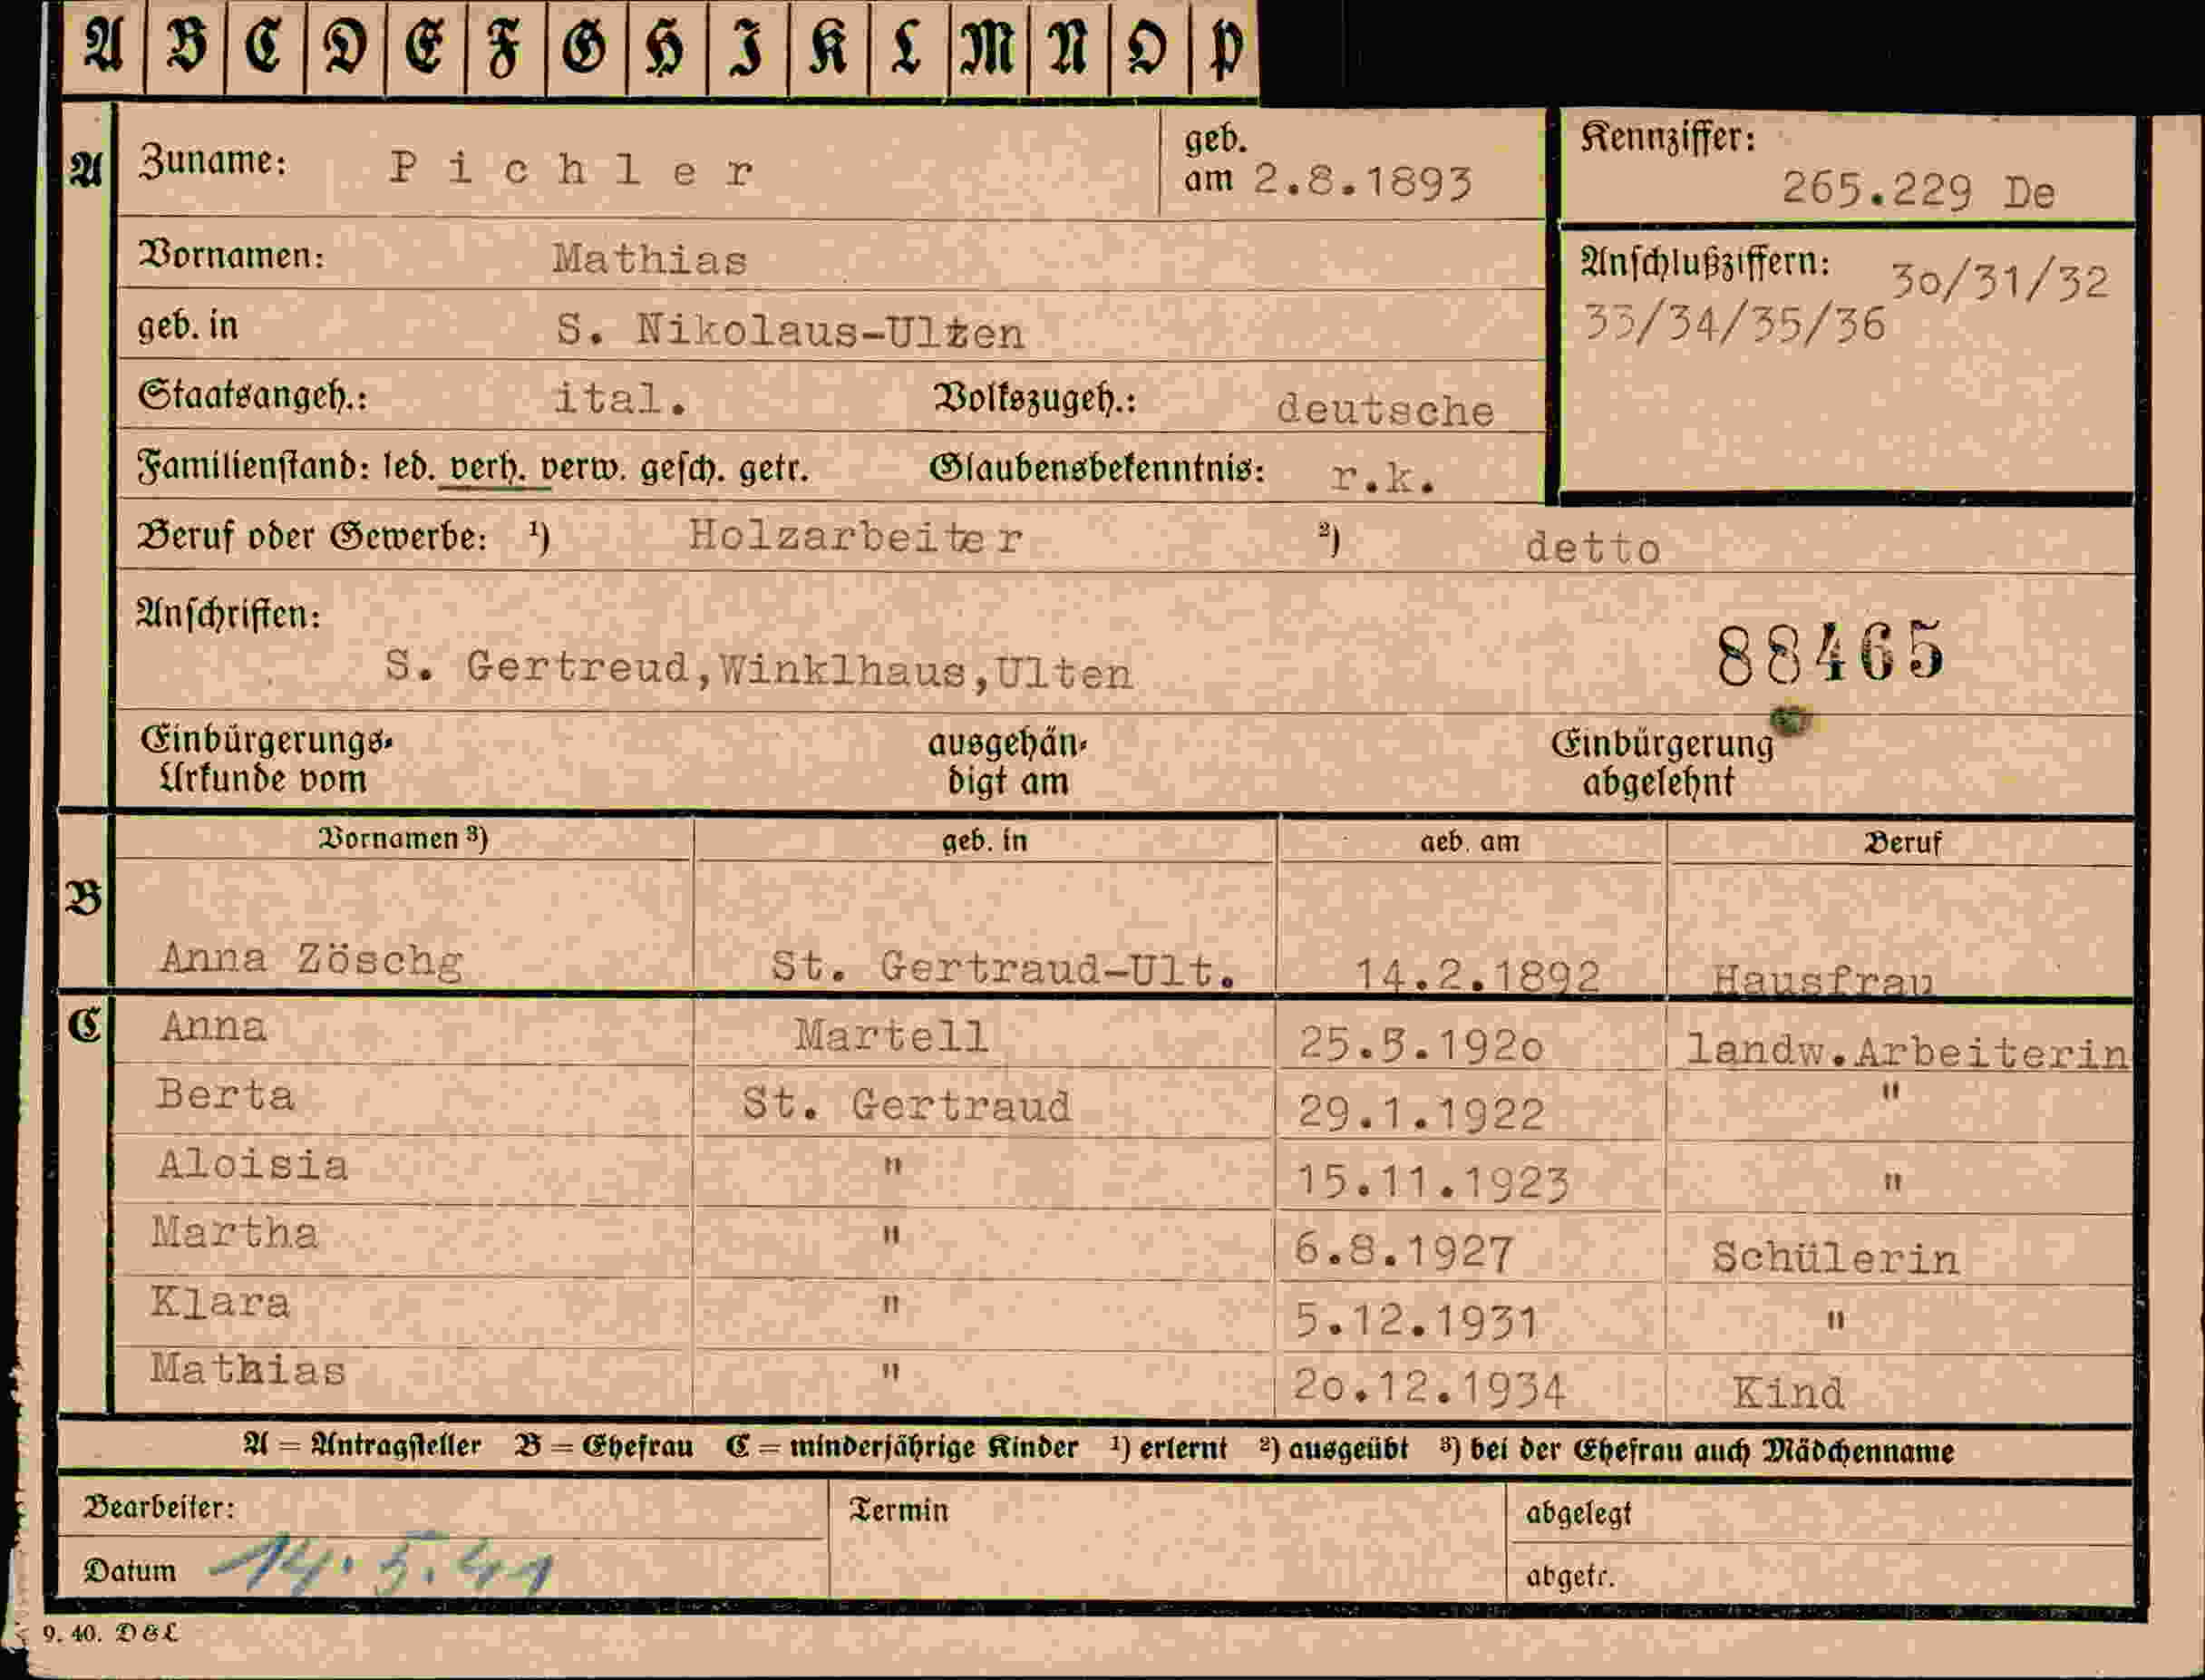 A B C D E F G H I K L M N O P
A Zuname: Pichler geb. am 2.8.1893 Kennziffer: 265.229 De
Vornamen: Mathias Anschlußziffern: 30/31/32
33/34/35/36
geb. in S. Nikolaus-Ulten
Staatsangeh.: ital. Volkszugeh.: deutsche
Familienstand: led. verh. verw. gesch. getr. Glaubensbekenntnis: r.k.
Beruf oder Gewerbe: ¹) Holzarbeiter ²) detto
Anschriften:
S. Gertreud,Winklhaus,Ulten 88465
Einbürgerungs- ausgehän- Einbürgerung
Urkunde vom digt am abgelehnt
Vornamen ³) geb. in geb. am Beruf
B
Anna Zöschg St. Gertraud-Ult. 14.2.1892 Hausfrau
C Anna Martell 25.5.1920 landw.Arbeiterin
Berta St. Gertraud 29.1.1922 "
Aloisia " 15.11.1923 "
Martha " 6.8.1927 Schülerin
Klara " 5.12.1931 "
Mathias " 20.12.1934 Kind
A = Antragsteller B = Ehefrau C = minderjährige Kinder ¹) erlernt ²) ausgeübt ³) bei der Ehefrau auch Mädchenname
Bearbeiter: Termin abgelegt
Datum 14.5.41 abgetr.
9. 40. D&L